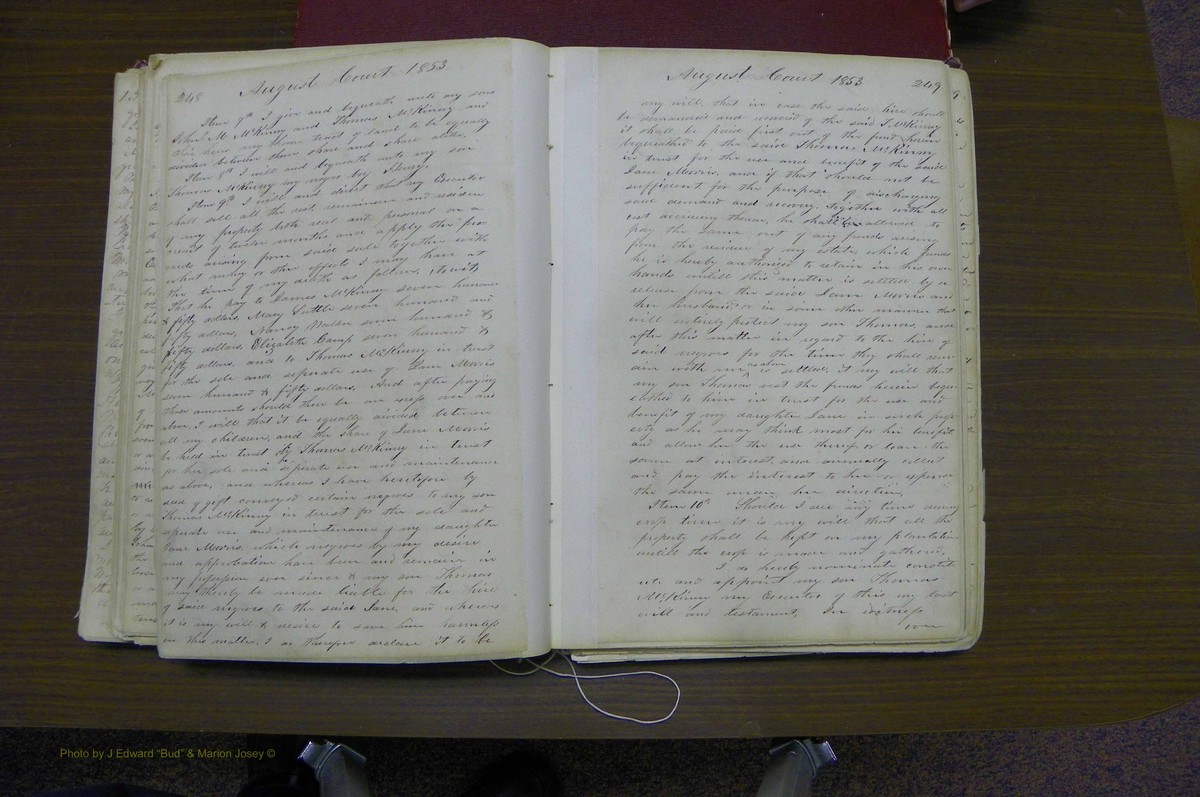 248 August Court 1853
Item 7th I give and bequeath unto my sons
John M. McKinny and Thomas McKinny and
their heirs my home tract of land to be equally
divided between them share and share alike.
Item 8th I will and bequeath unto my son
Thomas McKinny my negro boy Henry.
Item 9th I will and direct that my Executor
shall sell all the rest, remainder and residue
of my property both real and personal on a
credit of twelve months and apply the pro
ceeds arising from said sale together with
what money or other effects I may have at
the time of my death as follows, to wit,
That he pay to James McKinny seven hundred
& fifty dollars, Mary Suttle seven hundred and
fifty dollars, Nancy Walker seven hundred &
fifty dollars, Elizabeth Camp seven hundred &
fifty dollars, and to Thomas McKinny in trust
for the sole and seperate use of Jane Morris
seven hundred & fifty dollars. And after paying
these amounts should there be an over and
above, I will that it be equally divided between
all my children, and the share of Jane Morris
be held in trust by Thomas McKinny in trust
for her sole and seperate use and maintenance
as above, and whereas I have heretofore by
deed of gift conveyed certain negroes to my son
Thomas McKinny in trust for the sole and
seperate use and maintenance of my daughter
Jane Morris, which negroes by my desire
and approbation have been and remained in
my possession ever since & my son Thomas
may thereby be made liable for the hire
of said negroes to the said Jane, and whereas
it is my will & desire to save him harmless
in this matter, I do therefore declare it to be
August Court 1853 249
my will, that in case the said hire should
be demanded and recovered of the said T. McKinny
it shall be paid first out of the fund herein
bequeathed to the said Thomas McKinny
in trust for the use and benefit of the said
Jane Morris, and if that should not be
sufficient for the purpose of discharging
said demand and recovery, together with all
cost accruing thereon, he shall be allowed to
pay the same out of any funds arising
from the residue of my estate, which funds
he is hereby authorised to retain in his own
hands untill this matter is settled by a
release from the said Jane Morris and
her husband or in some other manner that
will entirely protect my son Thomas, and
after this matter in regard to the hire of
said negroes for the time they shall rem
ain with me is settled, it my will that
my son Thomas vest the funds herein bequ
eathed to him in trust for the use and
benefit of my daughter Jane in such prop
erty as he may think most for her benefit
and allow her the use thereof or loan the
same at interest, and annually collect
and pay the interest to her or expend
the same under her direction.
Item 10th Should I die any time during
crop time it is my will that all the
property shall be kept on my plantation
untill the crop is made and gathered.
I do hereby nominate constit
ute and appoint my son Thomas
McKinny my Executor of this my last
will and testament, In witness
over
Photo by J Edward “Bud” & Marion Josey ©